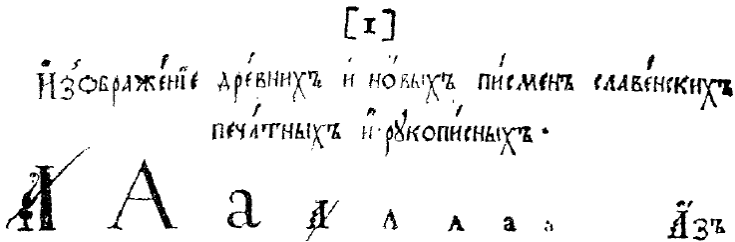 [1]
И҆зѡбраже́нїе дре́внихъ и҆ но́выхъ пи́сменъ славе́нскихъ
печа́тныхъ и҆ рꙋкопи́сныхъ.
А А а А А А а а А҆́зъ